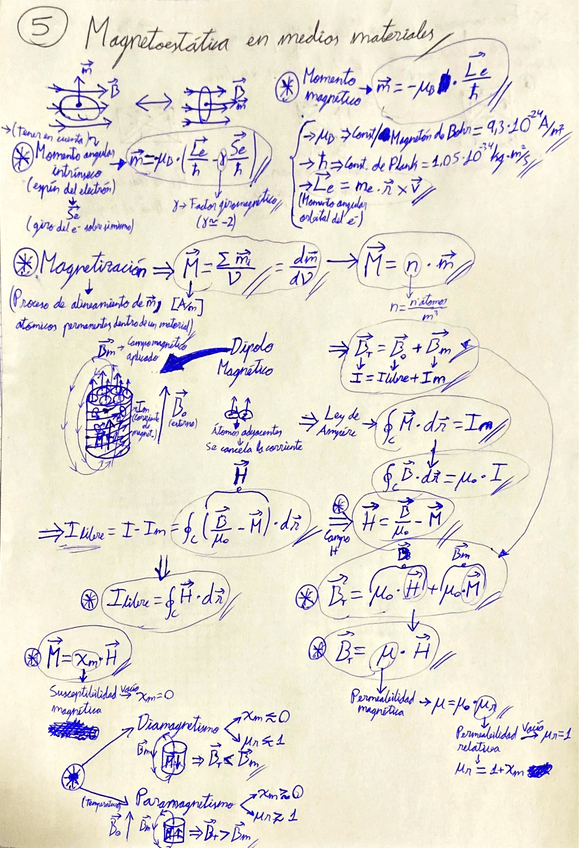 5 Magnetoestática en medios materiales
m⃗ B⃗ ↔ B⃗ m⃗
* Momento magnético → m⃗ = -μB · L⃗e/ħ
→ (Tener en cuenta)
* Momento angular intrínseco (espín del electrón) → m⃗ = -μB · (L⃗e/ħ - γ S⃗e/ħ)
S⃗e
(giro del e⁻ sobre sí mismo)
γ → Factor giromagnético
(γ ≃ -2)
→ μB → Const/Magnetón de Bohr = 9,3·10⁻²⁴ A/m²
→ ħ → Const. de Plank = 1.05·10⁻³⁴ kg·m²/s
→ L⃗e = me · r⃗ × v⃗
(Momento angular orbital del e⁻)
* Magnetización ⇒ M⃗ = Σm⃗i/V = dm⃗/dV → M⃗ = n · m⃗
(Proceso de alineamiento de m⃗,
atómicos permanentes dentro de un material)
[A/m]
n = nº átomos/m³
B⃗m → Campo magnético aplicado
Dipolo Magnético
B⃗o (externo)
Átomos adyacentes
Se cancela la corriente
⇒ B⃗T = B⃗o + B⃗m
I = Ilibre + Im
⇒ Ley de Ampère → ∮c M⃗ · dr⃗ = Im
∮c B⃗ · dr⃗ = μo · I
H⃗
⇒ Ilibre = I - Im = ∮c (B⃗/μo - M⃗) · dr⃗
* ⇒ Campo H H⃗ = B⃗/μo - M⃗
B⃗m
* Ilibre = ∮c H⃗ · dr⃗
* B⃗T = μo · H⃗ + μo · M⃗
* M⃗ = χm · H⃗
* B⃗T = μ · H⃗
Susceptibilidad magnética vacío → χm = 0
Permeabilidad magnética → μ = μo · μr
Permeabilidad relativa vacío → μr = 1
μr = 1 + χm
*
Diamagnetismo χm ≲ 0
μr ≲ 1
B⃗m ⇒ B⃗T < B⃗m
(Temperatura) Paramagnetismo χm ≳ 0
μr ≳ 1
B⃗o B⃗m ⇒ B⃗T > B⃗m